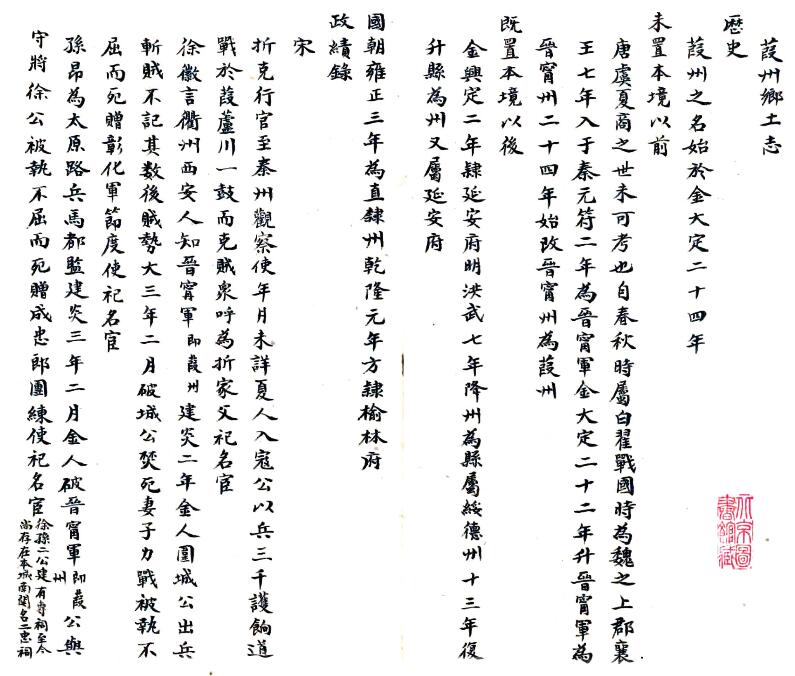 葭州鄉土志
歷史
葭州之名始於金大定二十四年
未置本境以前
唐虞夏商之世未可考也自春秋時屬白翟戰國時為魏之上郡襄
王七年入于秦元符二年為晉甯軍金大定二十二年升晉甯軍為
晉甯州二十四年始改晉甯州為葭州
既置本境以後
金興定二年隸延安府明洪武七年降州為縣屬綏德州十三年復
升縣為州又屬延安府
國朝雍正三年為直隸州乾隆元年方隸榆林府
政績錄
宋
折克行官至秦州觀察使年月未詳夏人入寇公以兵三千護餉道
戰於葭蘆川一鼓而克賊衆呼為折家父祀名宦
徐徽言衢州西安人知晉甯軍即葭州建炎二年金人圍城公出兵
斬賊不記其數後賊勢大三年二月破城公焚死妻子力戰被執不
屈而死贈彰化軍節度使祀名宦
孫昂為太原路兵馬都監建炎三年二月金人破晉甯軍即葭州公與
守將徐公被執不屈而死贈成忠郎團練使祀名宦徐孫二公建有專祠至今尚存在本城南関名二忠祠
北京圖書館藏